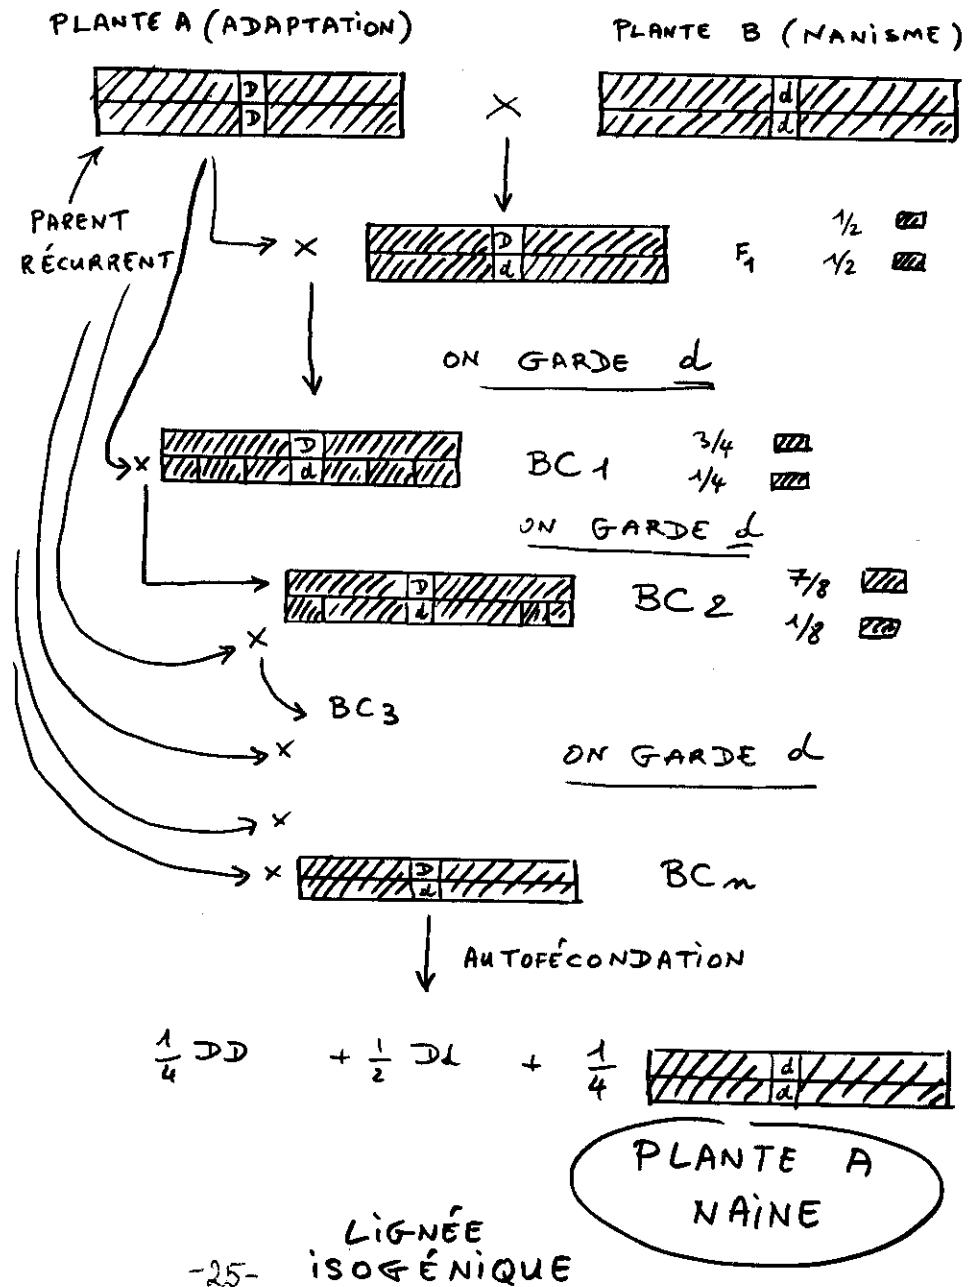 PLANTE A (ADAPTATION)
PLANTE B (NANISME)
D
D
×
d
d
PARENT
RÉCURRENT
×
D
d
F1
1/2
1/2
ON GARDE d
×
D
d
BC 1
3/4
1/4
ON GARDE d
D
d
BC 2
7/8
1/8
×
BC3
×
ON GARDE d
×
×
D
d
BCn
AUTOFÉCONDATION
1/4 DD + 1/2 Dd + 1/4
d
d
PLANTE A
NAINE
LIGNÉE
ISOGÉNIQUE
-25-